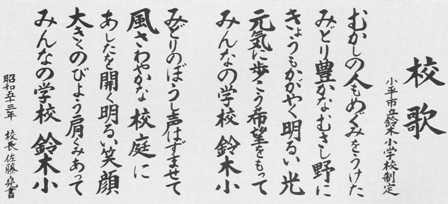 校歌
小平市立鈴木小学校制定
むかしの人もめぐみをうけた
みどり豊かなむさし野に
きょうもかがやく明るい光
元気に歩こう希望をもって
みんなの学校 鈴木小
みどりのぼうし声はずませて
風さわやかな校庭に
あしたを開く明るい笑顔
大きくのびよう肩くみあって
みんなの学校 鈴木小
昭和五十三年 校長 佐藤 書